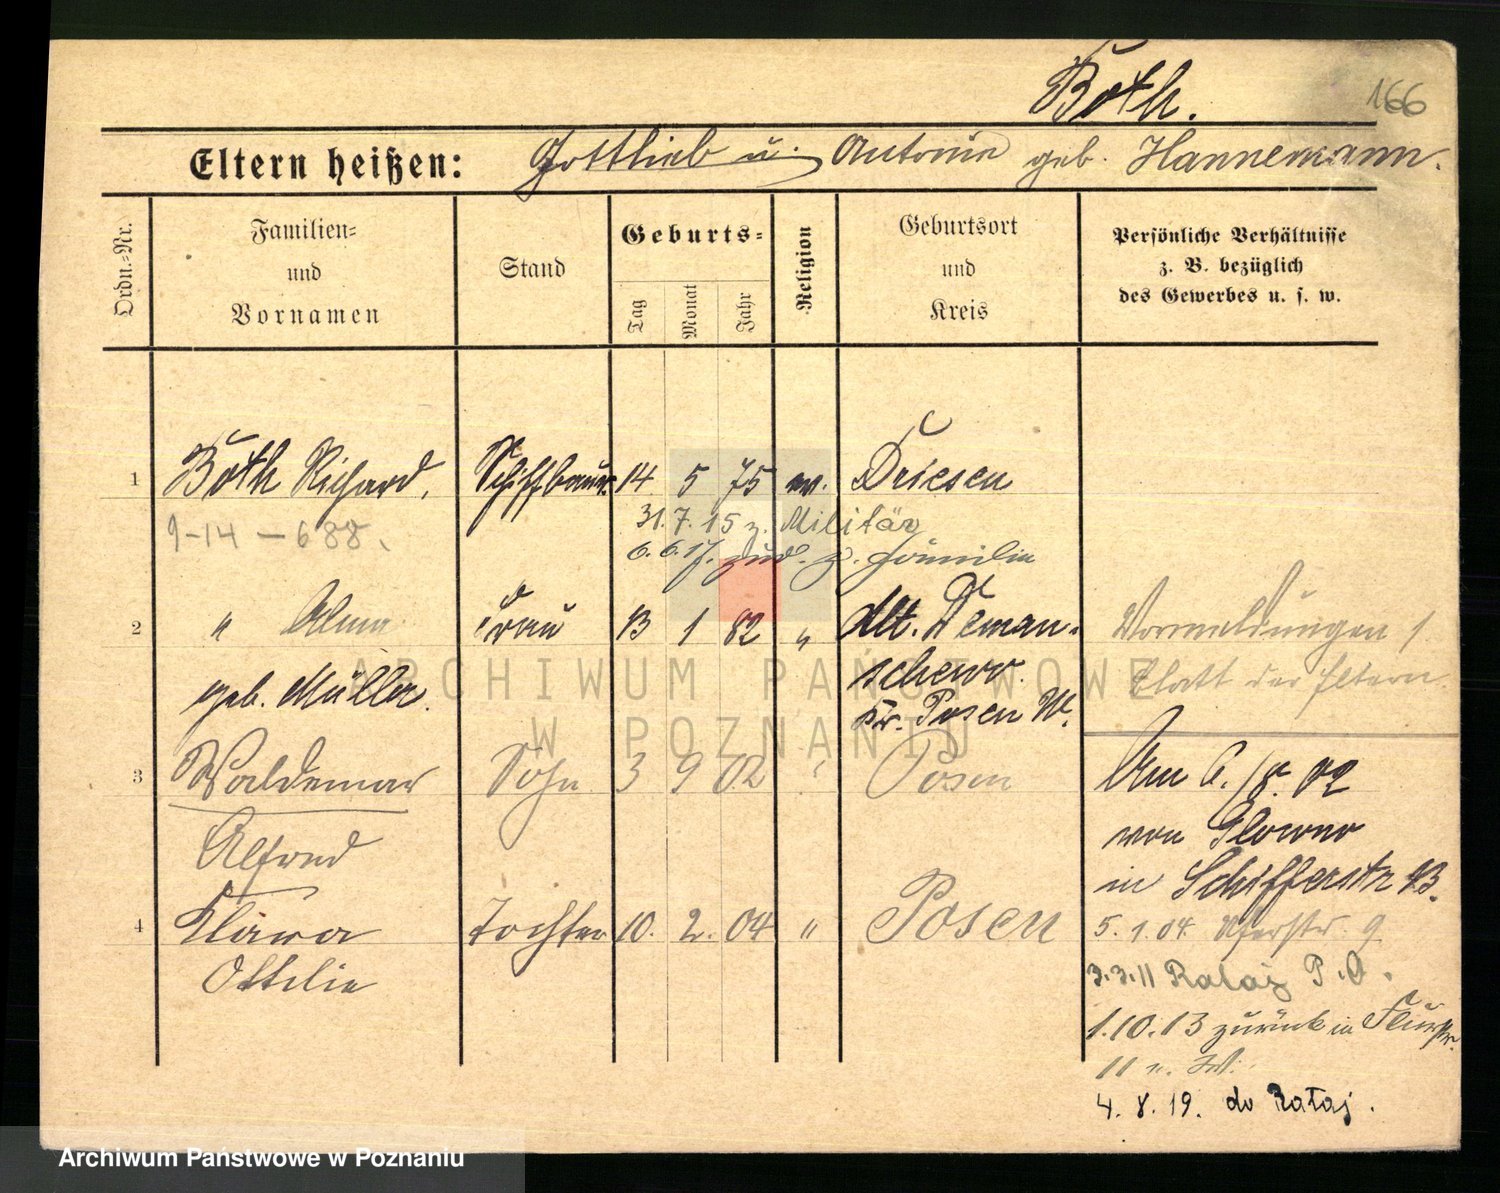 Both.
166
Eltern heißen: Gottlieb u. Antonie geb. Hannemann.
Ordn.-Nr.
Familien-
und
Vornamen
Stand
Geburts-
Tag
Monat
Jahr
Religion
Geburtsort
und
Kreis
Persönliche Verhältnisse
z. B. bezüglich
des Gewerbes u. s. w.
1 Both Richard. Schiffbauer 14 5 75 ev. Driesen
9-14-688.
31.7.15 z. Militär
6.6.17. zur. z. Familie
2 " Alma Frau 13 1 82 " Alt. Deman-
schewo.
geb. Müller.
Kr. Posen W.
Vormeldungen
Blatt der Eltern.
3 Waldemar Sohn 3 9 02 " Posen
Alfred
Am 6./8. 02
von Glowno
in Schifferstr 13.
4 Klara Tochter 10. 2. 04 " Posen
Ottilie
5.1.04 9
3.3.11 Rataj P.O.
1.10.13 zurück in
11 u.
4.8.19. do Rataj.
ARCHIWUM PAŃSTWOWE
W POZNANIU
Archiwum Państwowe w Poznaniu